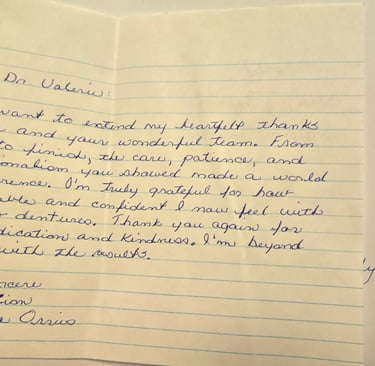 Dr. Valerie:
want to extend my heartfelt thanks
and your wonderful team. From
to finish, the care, patience, and
ionalism you showed made a world
rence. I'm truly grateful for how
able and confident I now feel with
dentures. Thank you again for
dication and kindness. I'm beyond
with the results.
ncere
tion